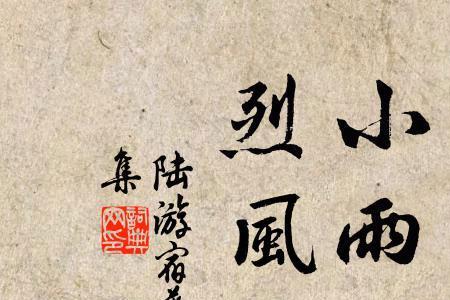 小雨
烈風
陸游宿
集
詞典网印